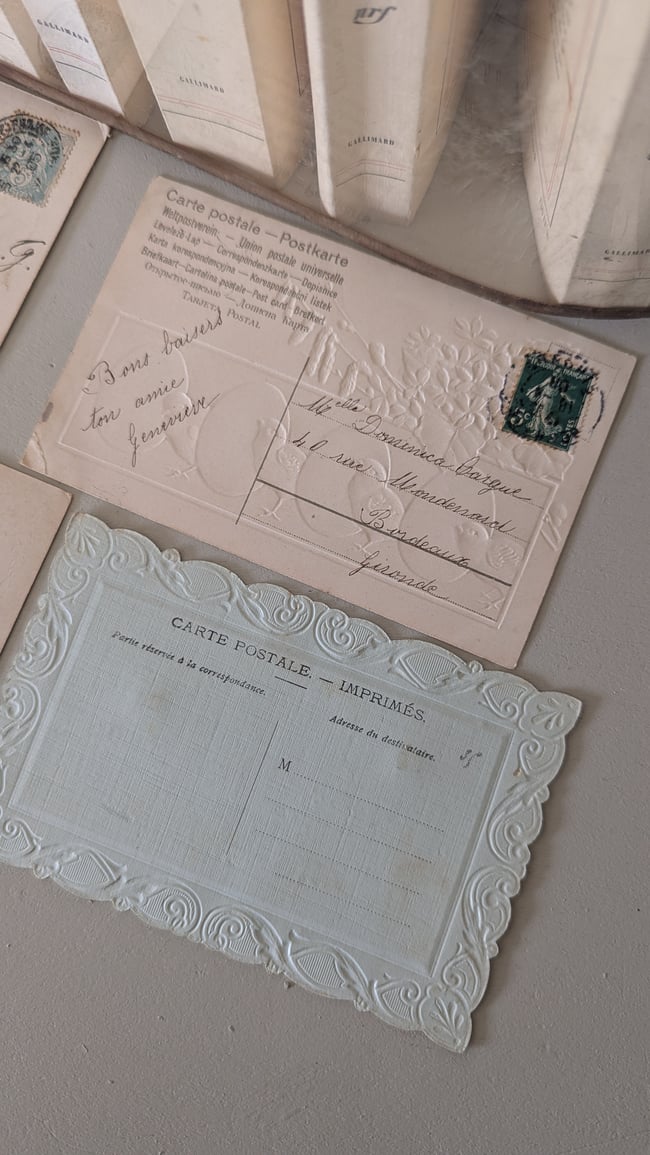 nrf
GALLIMARD
GALLIMARD
GALLIMARD
Carte postale — Postkarte
Weltpostverein. — Union postale universelle
Levelező-Lap — Correspondenzkarte — Dopisnice
Karta korespondencyjna — Korespondenčni listek
Briefkaart — Cartolina postale — Post card — Brefkort
Открытое письмо — Дописна карта
TARJETA POSTAL
Bons baisers
ton amie
Geneviève
5c
Melle Domenica
40 rue Mondenard
Bordeaux
Gironde
CARTE POSTALE. — IMPRIMÉS.
Partie réservée à la correspondance.
Adresse du destinataire.
M